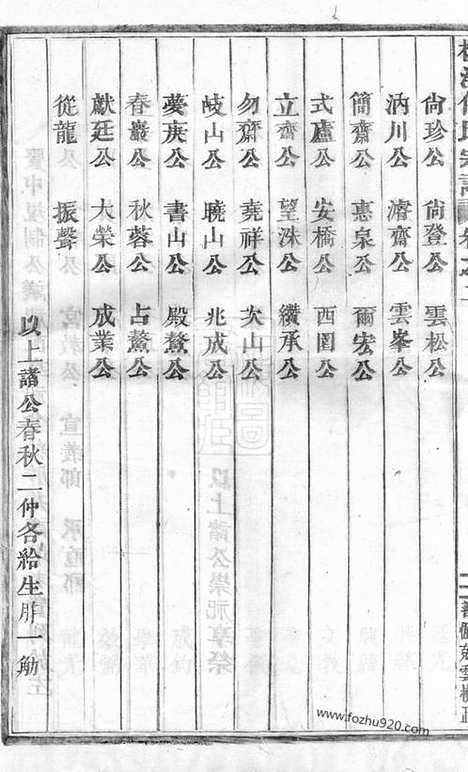 尙珍公 尙登公 雲松公
汭川公 濬齋公 雲峯公
簡齋公 惠泉公 爾宏公
式廬公 安橋公 西園公
立齋公 望洙公 纘承公
勿齋公 堯祥公 次山公
岐山公 曉山公 兆成公
夢庚公 書山公 殿鰲公
春巖公 秋蓉公 占鰲公
獻廷公 大榮公 成業公
從龍公 振聲公
以上諸公春秋二仲各給生胙一觔
www.fozhu920.com